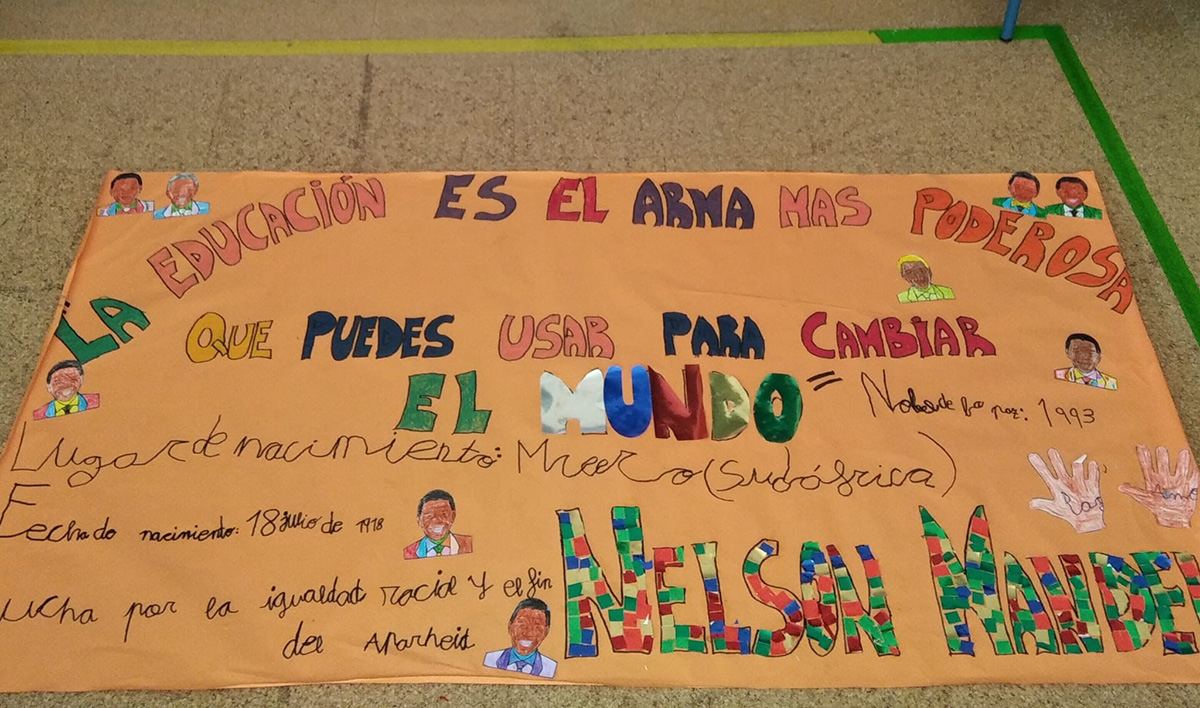 "LA EDUCACIÓN ES EL ARMA MAS PODEROSA
QUE PUEDES USAR PARA CAMBIAR
EL MUNDO"
Nobel de la paz: 1993
Lugar de nacimiento: (Sudáfrica)
Fecha de nacimiento: 18 julio de 1918
Paz
ucha por la igualdad racial y el fin
del Aparheid
NELSON MANDEL